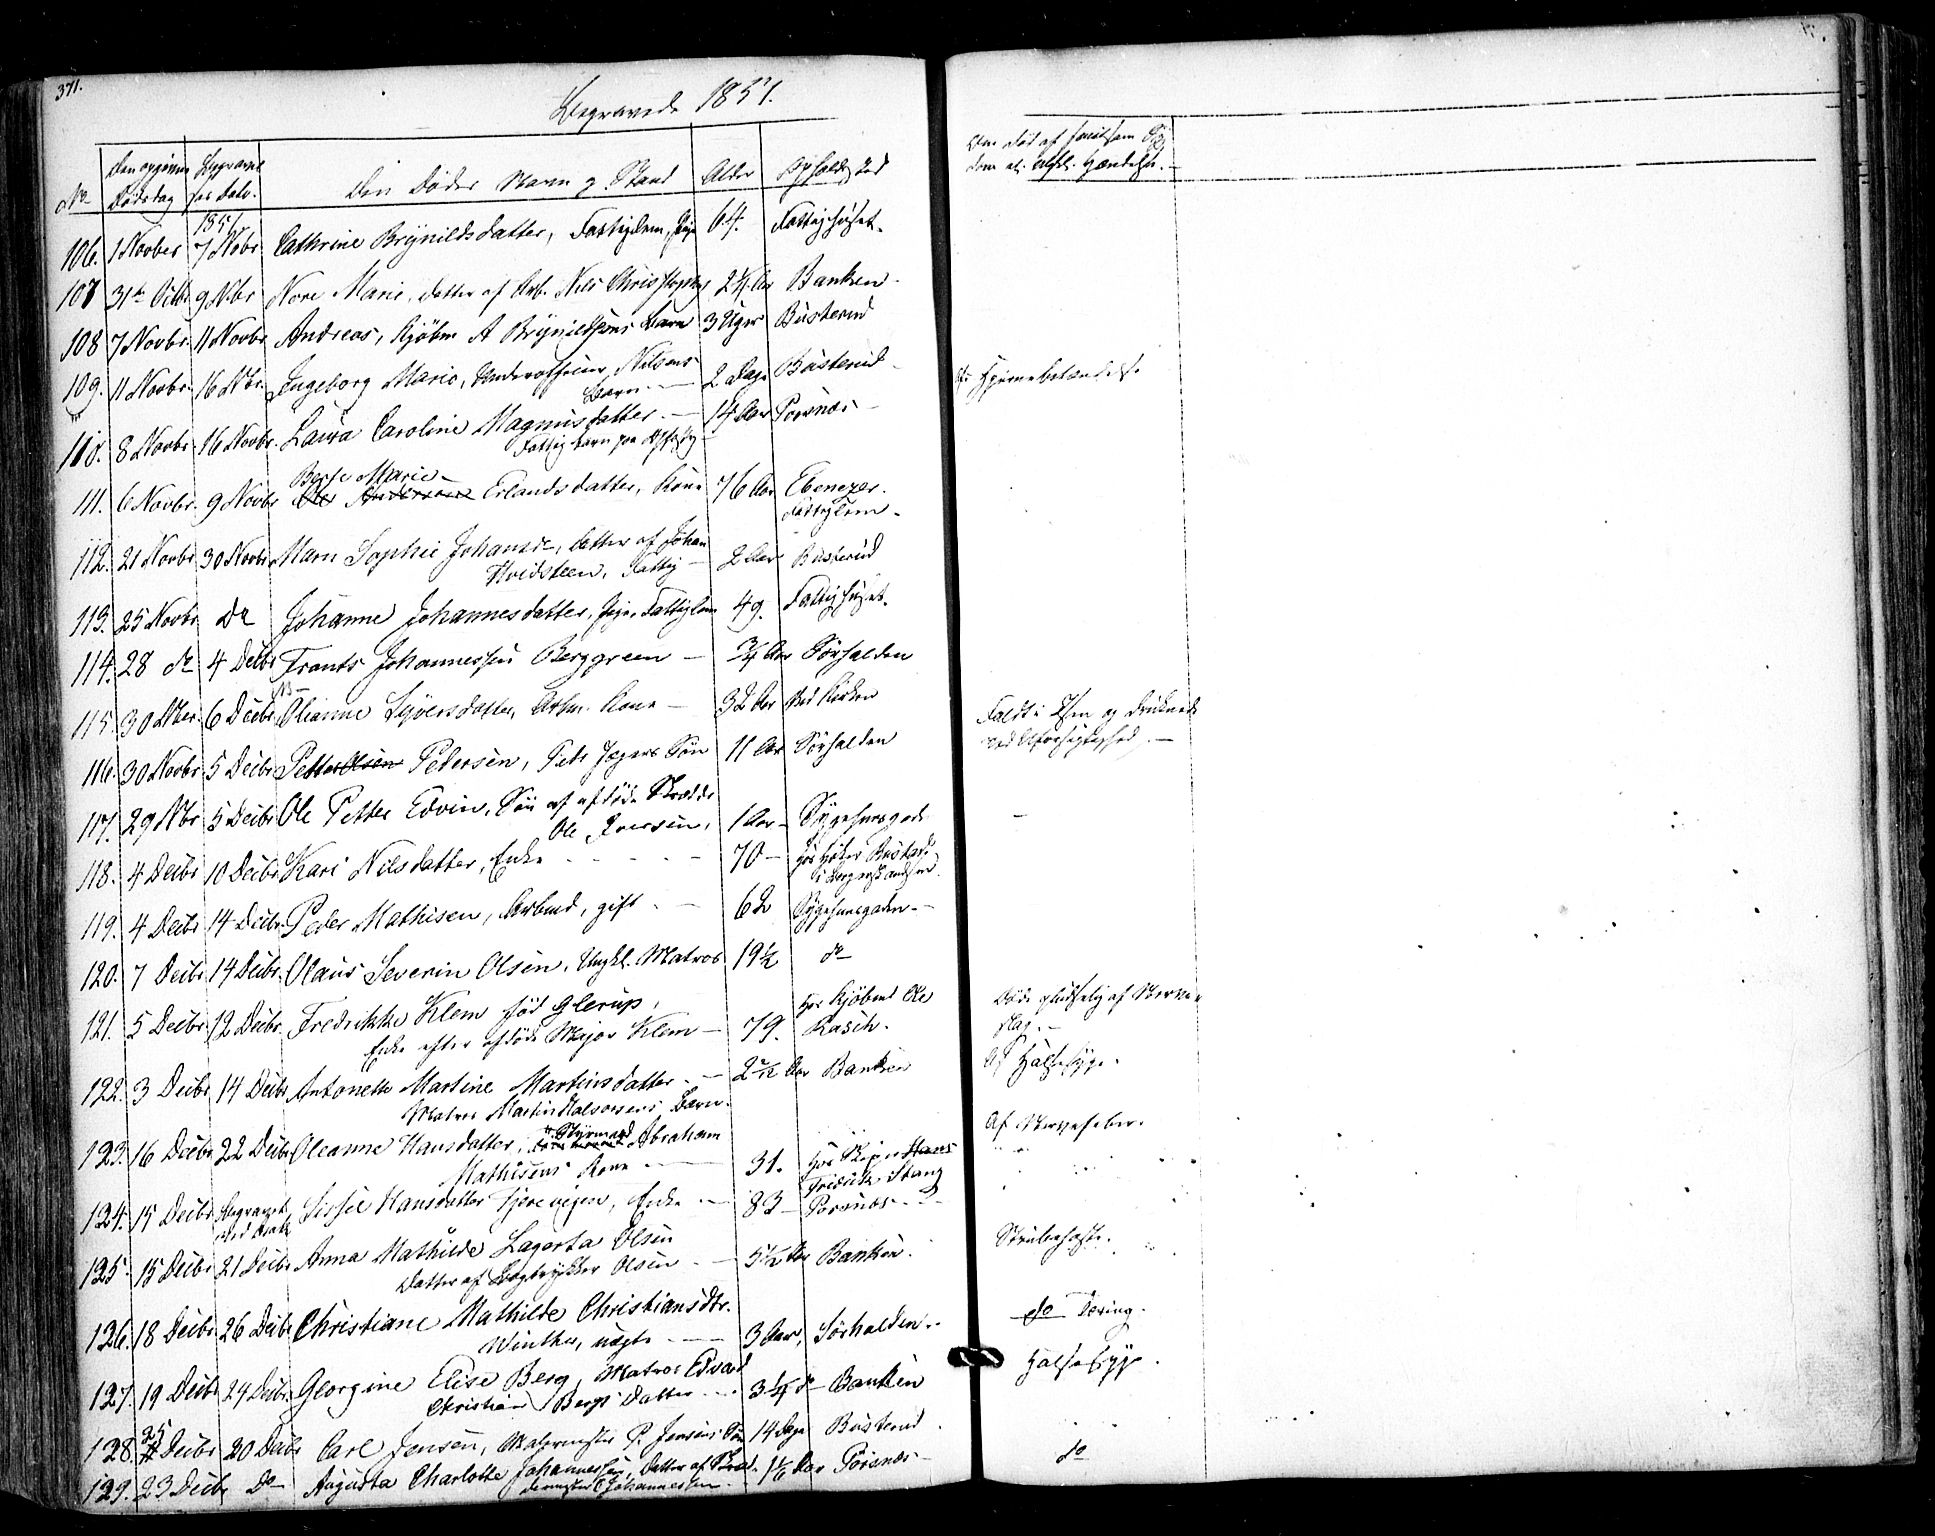 371.
Begravede 1857.
No | Den opgivne Dødsdag | Begravet Dato. | Den Dødes Navn og Stand | Alder | Opholdssted | Om død af smitsom Syg
dom el. Hændelse. —
106. 1 Novber 7 Nobr Cathrine Brynildsdatter, Fattiglem, Pige 64. Fattighuset.
107 31te Octbr 9 Nbr Nore Marie, datter af Arb. Nils Christophers Aar Banken.
108 7 Novbr 11 Novbr Andreas, Kjøbm A Brynildsens Barn 3 Uger Busterud
109. 11 Novbr. 16 Nbr. Ingeborg Marie, Nilsens
Barn — 2 Dage Busterud — Hjernebetændelse
110. 8 Novbr. 16 Novbr. Laura Caroline Magnusdatter. — 14 Aar Porsnæs —
Fattigbarn
Berte Marie
111. 6 Novbr. 9 Novbr Ole Andersens Erlandsdatter, Kone 76 Aar Ebenezer.
Fattiglem.
112. 21 Novbr 30 Novbr Maren Sophie Johansdr, datter af Johan
Hvidsteen, Fattig — 2 Aar Busterud
113. 25 Novbr Do Johanne Johannesdatter, Pige, Fattiglem 49. Fattighuset.
114. 28 do 4 Decbr Frants Johannessen Berggreen — 3/4 Aar Sørhalden
115. 30 Nber. 6 Decbr Oleanne Syversdatter, Kone — 32 Aar Ved Kirken
116. 30 Novbr 5 Decbr Petter Olsen Pedersen, Peder Jægers Søn 11 Aar Sørhalden Faldt i Elven og druknede
ved Uforsigtighed. —
117. 29 Nbr 5 Decbr Ole Petter Edvin, Søn af afdøde Skrædder
Ole Iversen, 1 Aar — Sygehusgaden
118. 4 Decbr 10 Decbr Kari Nilsdatter, Enke — 70 — hos
119. 4 Decbr 14 Decbr. Peder Mathisen, Arbmd, gift — 62 Sygehusgaden —
120. 7 Decbr 14 Decbr. Olaus Severin Olsen, Ungkl. Matros 19½ do
121. 5 Decbr. 12 Decbr. Fredrikke Klem født Glerup,
Enke efter afdøde Major Klem — 79. hos Kjøbmd Ole
Rasch. Døde pludselig af Nerve
slag. —
122. 3 Decbr 14 Decbr Antonette Martine Martinsdatter — Aar Banken Af Halssyge.
Matros Martin Halvorsens Barn.
123. 16 Decbr 22 Decbr Oleanne Hansdatter, Styrmand Abraham
Mathisens Kone — 31. hos Skipr Hans
Fredrik Stang Af Nervefeber.
124. 15 Decbr Begravet Sissel Hansdatter Tjerevejen, Enke — 83 — Porsnæs
125. 15 Decbr 21 Decbr Anna Mathilde Lagerta Olsen
Datter af Bogtrykker Olsen — 5½ Aar Banken. Strubehoste.
126. 18 Decbr. 26 Decbr Christiane Mathilde Christiansdtr.
Winther, uægte — 3 Aar, Sørhalden. do Tæring.
127. 19 Decbr 24 Decbr. Georgine Elise Berg, Matros Edvard
Christian Bergs Datter — 3¼ do Banken Halssyge.
128. 25 Decbr 20 Decbr Carl Jensen, Malermester P. Jensens Søn 14 Dage Busterud
129. 23 Decbr Do Augusta Charlotte Johannessen, Datter af Skræd-
dermester Johannessen. Aar Porsnæs — do